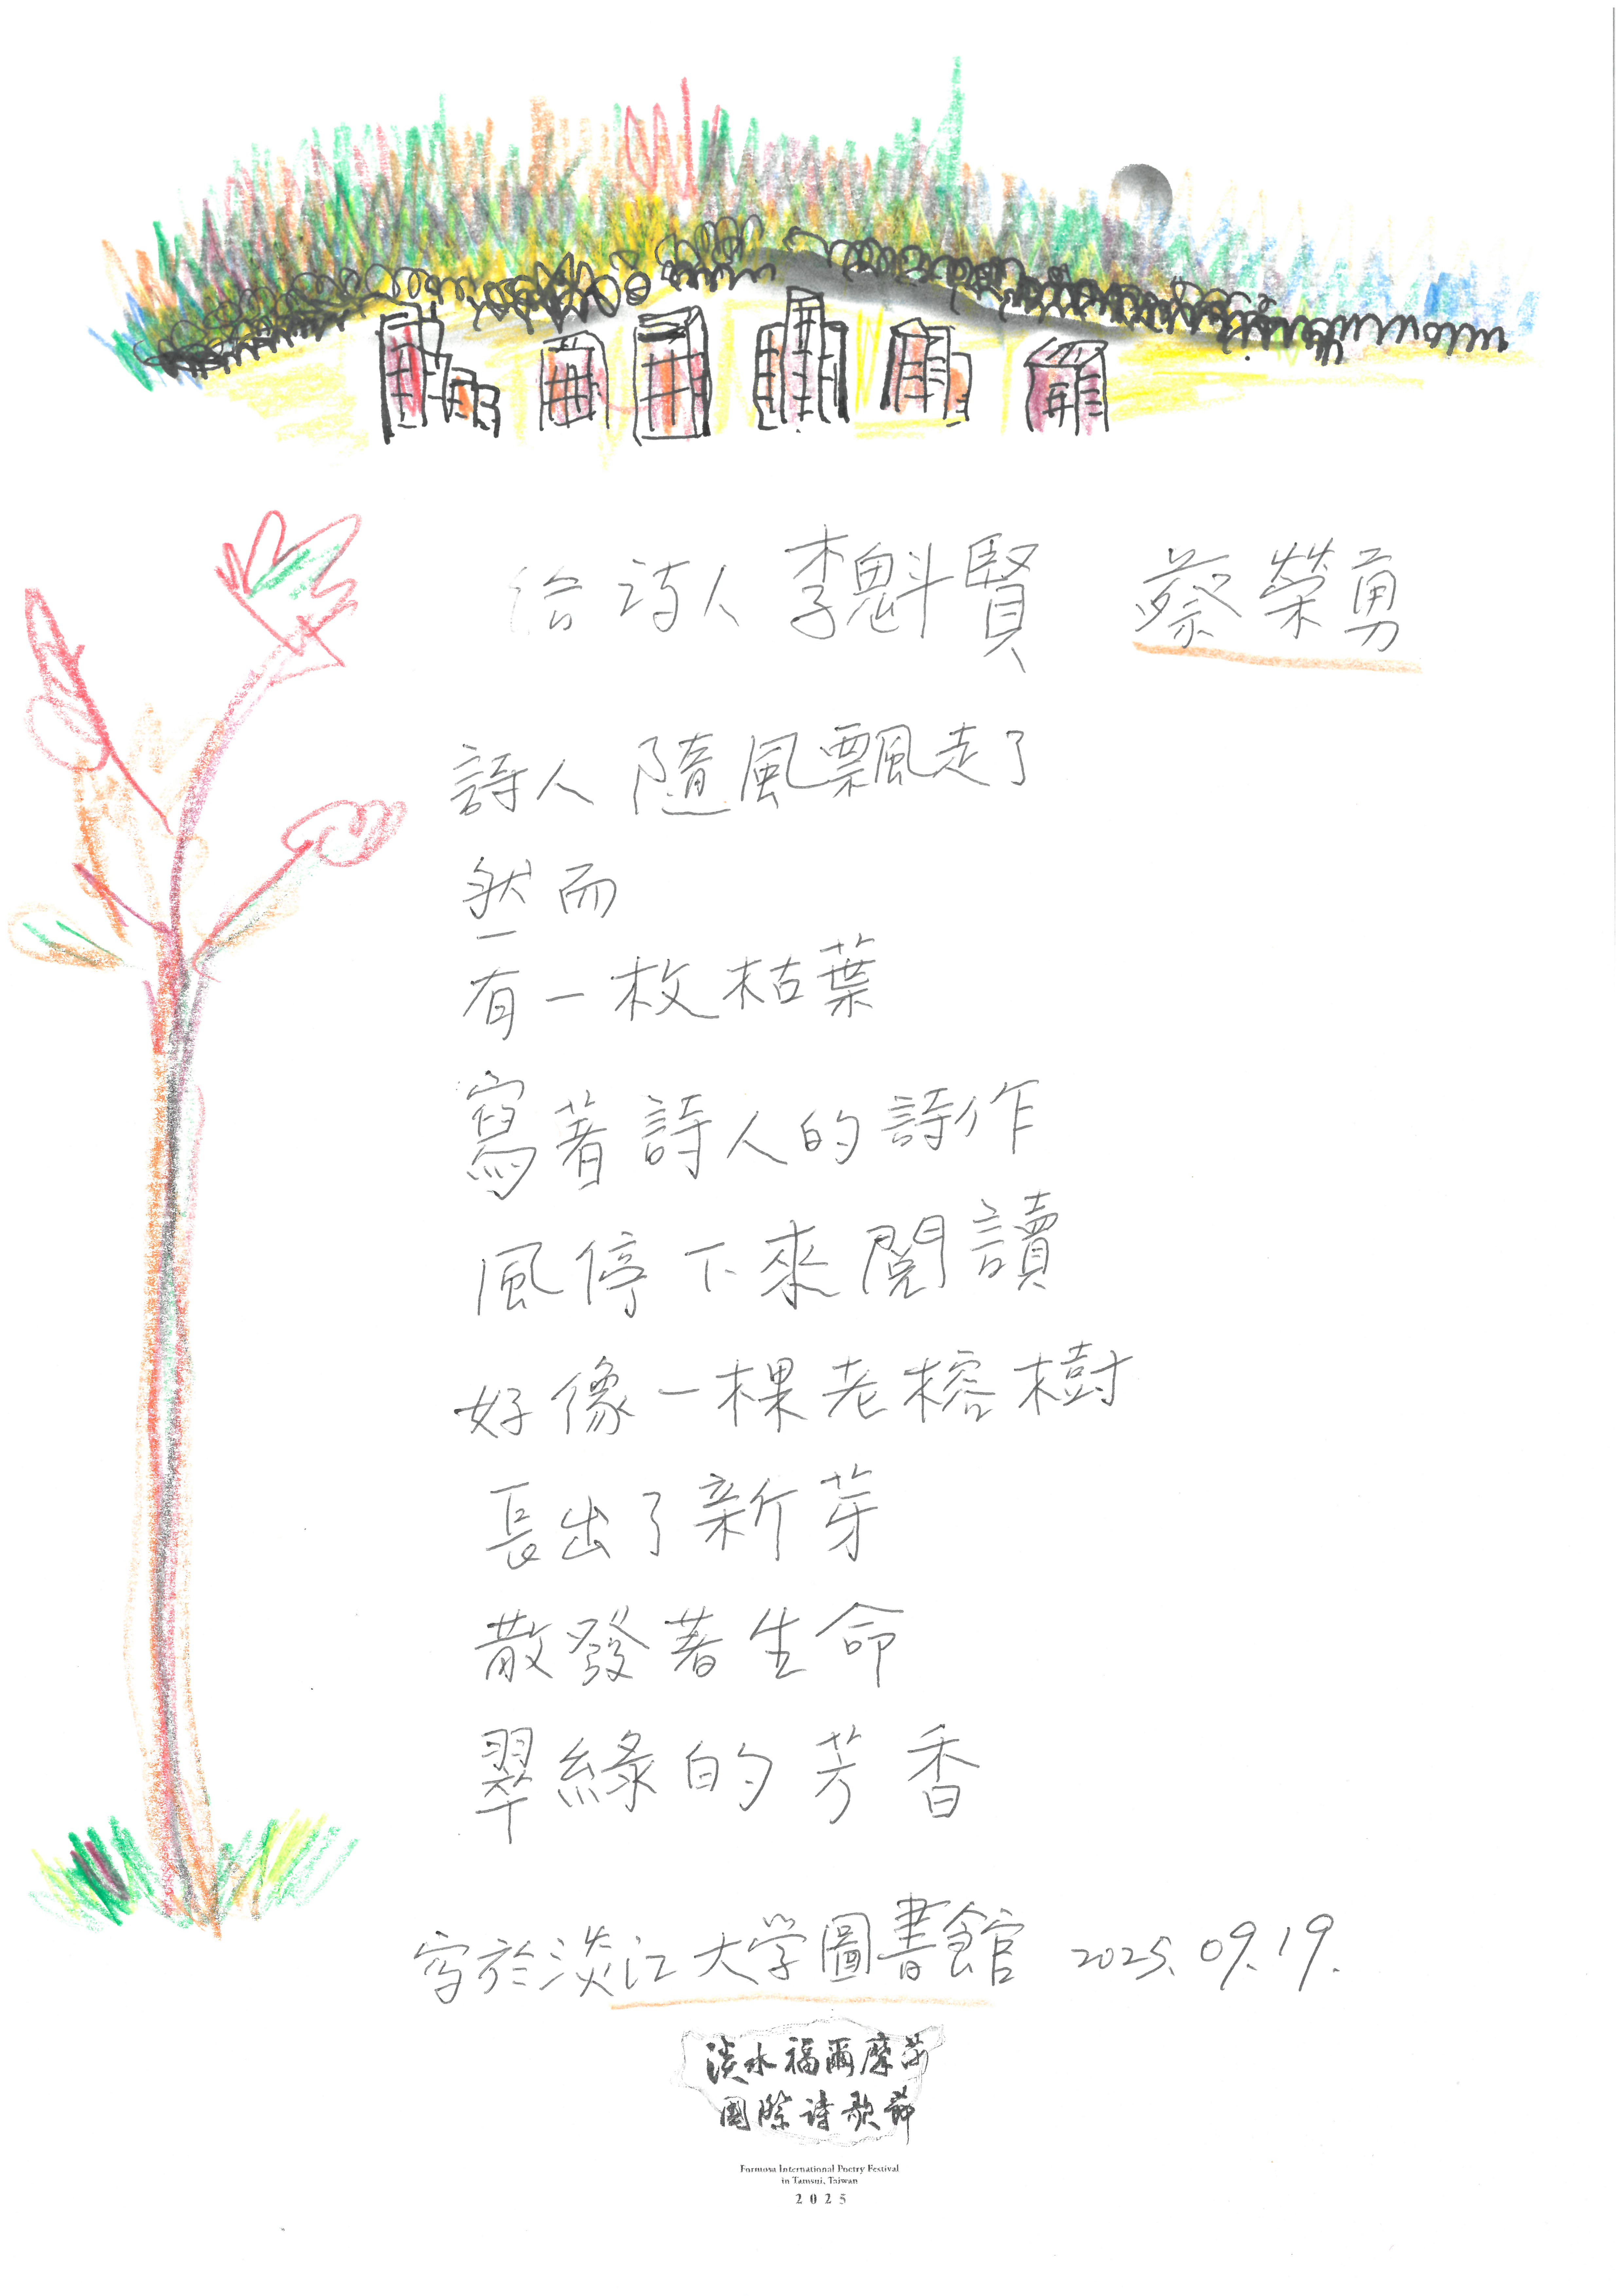 给诗人 李魁賢 蔡榮勇
詩人 隨風飄走了
然而
有一枚枯葉
寫著詩人的詩作
風停下來閱讀
好像一棵老榕樹
長出了新芽
散發著生命
翠綠的芳香
写於淡江大学圖書館 2025.09.19.
淡水福爾摩莎
國際詩歌節
Formosa International Poetry Festival
in Tamsui, Taiwan
2025